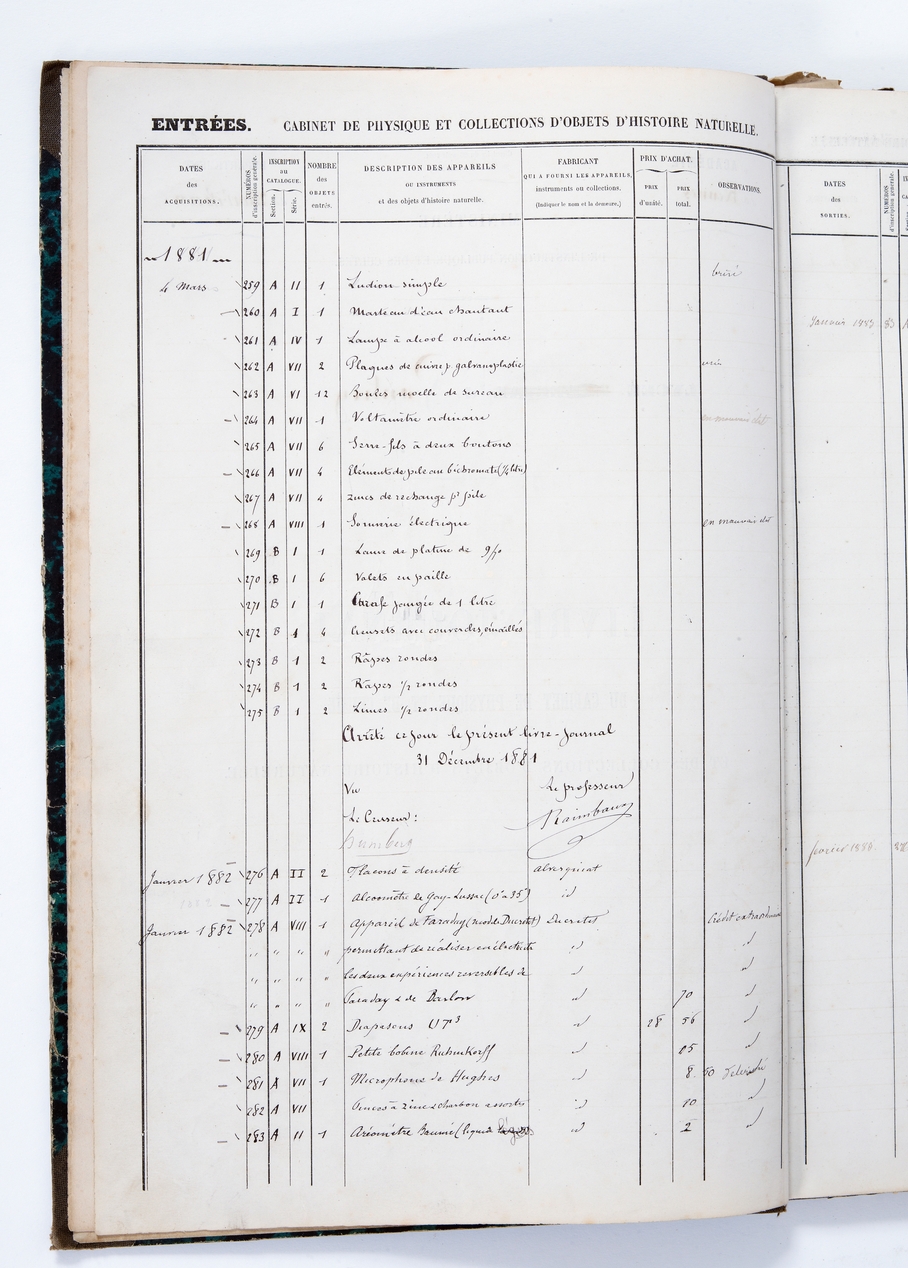 ENTRÉES. CABINET DE PHYSIQUE ET COLLECTIONS D'OBJETS D'HISTOIRE NATURELLE.
DATES des ACQUISITIONS.
NUMÉROS d'inscription générale.
INSCRIPTION au CATALOGUE.
Section. Série.
NOMBRE des OBJETS entrés.
DESCRIPTION DES APPAREILS
OU INSTRUMENTS
et des objets d'histoire naturelle.
FABRICANT
QUI A FOURNI LES APPAREILS,
instruments ou collections.
(Indiquer le nom et la demeure.)
PRIX D'ACHAT.
PRIX d'unité. PRIX total.
OBSERVATIONS.
DATES des SORTIES.
NUMÉROS d'inscription générale.
1881
4 Mars 259 A II 1 Ludion simple brisé
260 A I 1 Marteau d'eau chantant
261 A IV 1 Lampe à alcool ordinaire
262 A VII 2 Plaques de cuivre p. galvanoplastie
263 A VI 12 Boules moelle de sureau
264 A VII 1 Voltamètre ordinaire en mauvais état
265 A VII 6 Serre-fils à deux boutons
266 A VII 4 Eléments de pile au bichromate (1/4 litre)
267 A VII 4 zincs de rechange pr pile
268 A VIII 1 Sonnerie électrique en mauvais état
269 B I 1 Lame de platine de
270 B I 6 Valets en paille
271 B I 1 Carafe jaugée de 1 litre
272 B 1 4 Creusets avec couvercles, émaillés
273 B 1 2 Râpes rondes
274 B 1 2 Râpes 1/2 rondes
275 B 1 2 Limes 1/2 rondes
Arrêté ce jour le présent livre-journal
31 Décembre 1881
Vu Le professeur
Le Censeur : Raimbaux
Janvier 1882 276 A II 2 Flacons à densité Alvergniat
277 A II 1 Alcoomètre de Gay-Lussac (0 à 35) id
Janvier 1882 278 A VIII 1 Appareil de Faraday (mod. de Ducretet) Ducretet Crédit extraordinaire
" " " " permettant de réaliser en électricité id id
" " " " les deux expériences reversibles de id id
" " " " Faraday & de Barlow id 70 id
279 A IX 2 Diapasons UT3 id 28 56 id
280 A VIII 1 Petite bobine Ruhmkorff id 25 id
281 A VII 1 Microphone de Hughes id 8. 50
282 A VII Pinces à zinc & charbon assorties id 10 id
283 A II 1 Aréomètre Baumé (liquides id 2 id
Janvier 1883 83
février 1880.